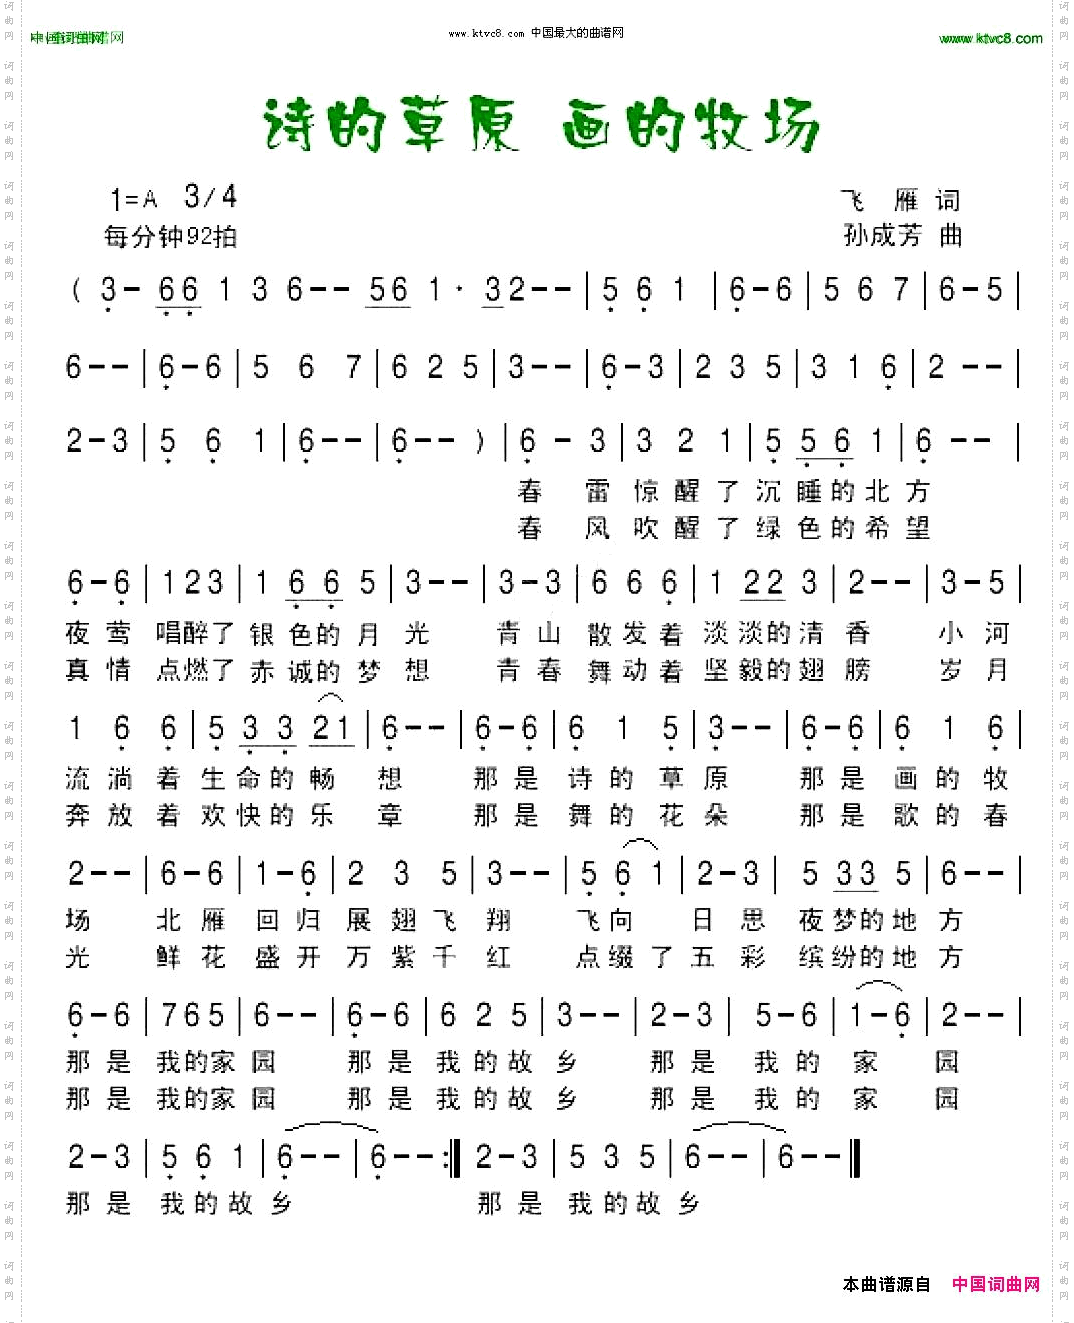 中国词曲网
www.ktvc8.com 中国最大的曲谱网
www.ktvc8.com
诗的草原 画的牧场
1=A 3/4
飞 雁 词
每分钟92拍
孙成芳 曲
( 3- 66 1 3 6-- 56 1· 32-- | 5 6 1 | 6-6 | 5 6 7 | 6-5 |
6-- | 6-6 | 5 6 7 | 6 2 5 | 3-- | 6-3 | 2 3 5 | 3 1 6 | 2 -- |
2-3 | 5 6 1 | 6-- | 6-- ) | 6 - 3 | 3 2 1 | 5 56 1 | 6 -- |
春 雷 惊 醒 了 沉 睡 的 北 方
春 风 吹 醒 了 绿 色 的 希 望
6-6 | 123 | 1 6 6 5 | 3-- | 3-3 | 6 6 6 | 1 22 3 | 2-- | 3-5 |
夜 莺 唱醉了 银 色的 月 光 青 山 散 发 着 淡淡的 清 香 小 河
真 情 点燃了 赤 诚的 梦 想 青 春 舞 动 着 坚毅的 翅 膀 岁 月
1 6 6 | 5 3 3 21 | 6-- | 6-6 | 6 1 5 | 3-- | 6-6 | 6 1 6 |
流 淌 着 生 命 的 畅 想 那 是 诗 的 草 原 那 是 画 的 牧
奔 放 着 欢 快 的 乐 章 那 是 舞 的 花 朵 那 是 歌 的 春
2-- | 6-6 | 1-6 | 2 3 5 | 3-- | 5 6 1 | 2-3 | 5 33 5 | 6-- |
场 北 雁 回 归 展 翅 飞 翔 飞 向 日 思 夜 梦 的 地 方
光 鲜 花 盛 开 万 紫 千 红 点 缀 了 五 彩 缤 纷 的 地 方
6-6 | 765 | 6-- | 6-6 | 6 2 5 | 3-- | 2-3 | 5-6 | 1-6 | 2-- |
那 是 我的家 园 那 是 我 的 故 乡 那 是 我 的 家 园
那 是 我的家 园 那 是 我 的 故 乡 那 是 我 的 家 园
2-3 | 5 6 1 | 6-- | 6--:‖ 2-3 | 5 3 5 | 6-- | 6--‖
那 是 我 的 故 乡 那 是 我 的 故 乡
本曲谱源自 中国词曲网